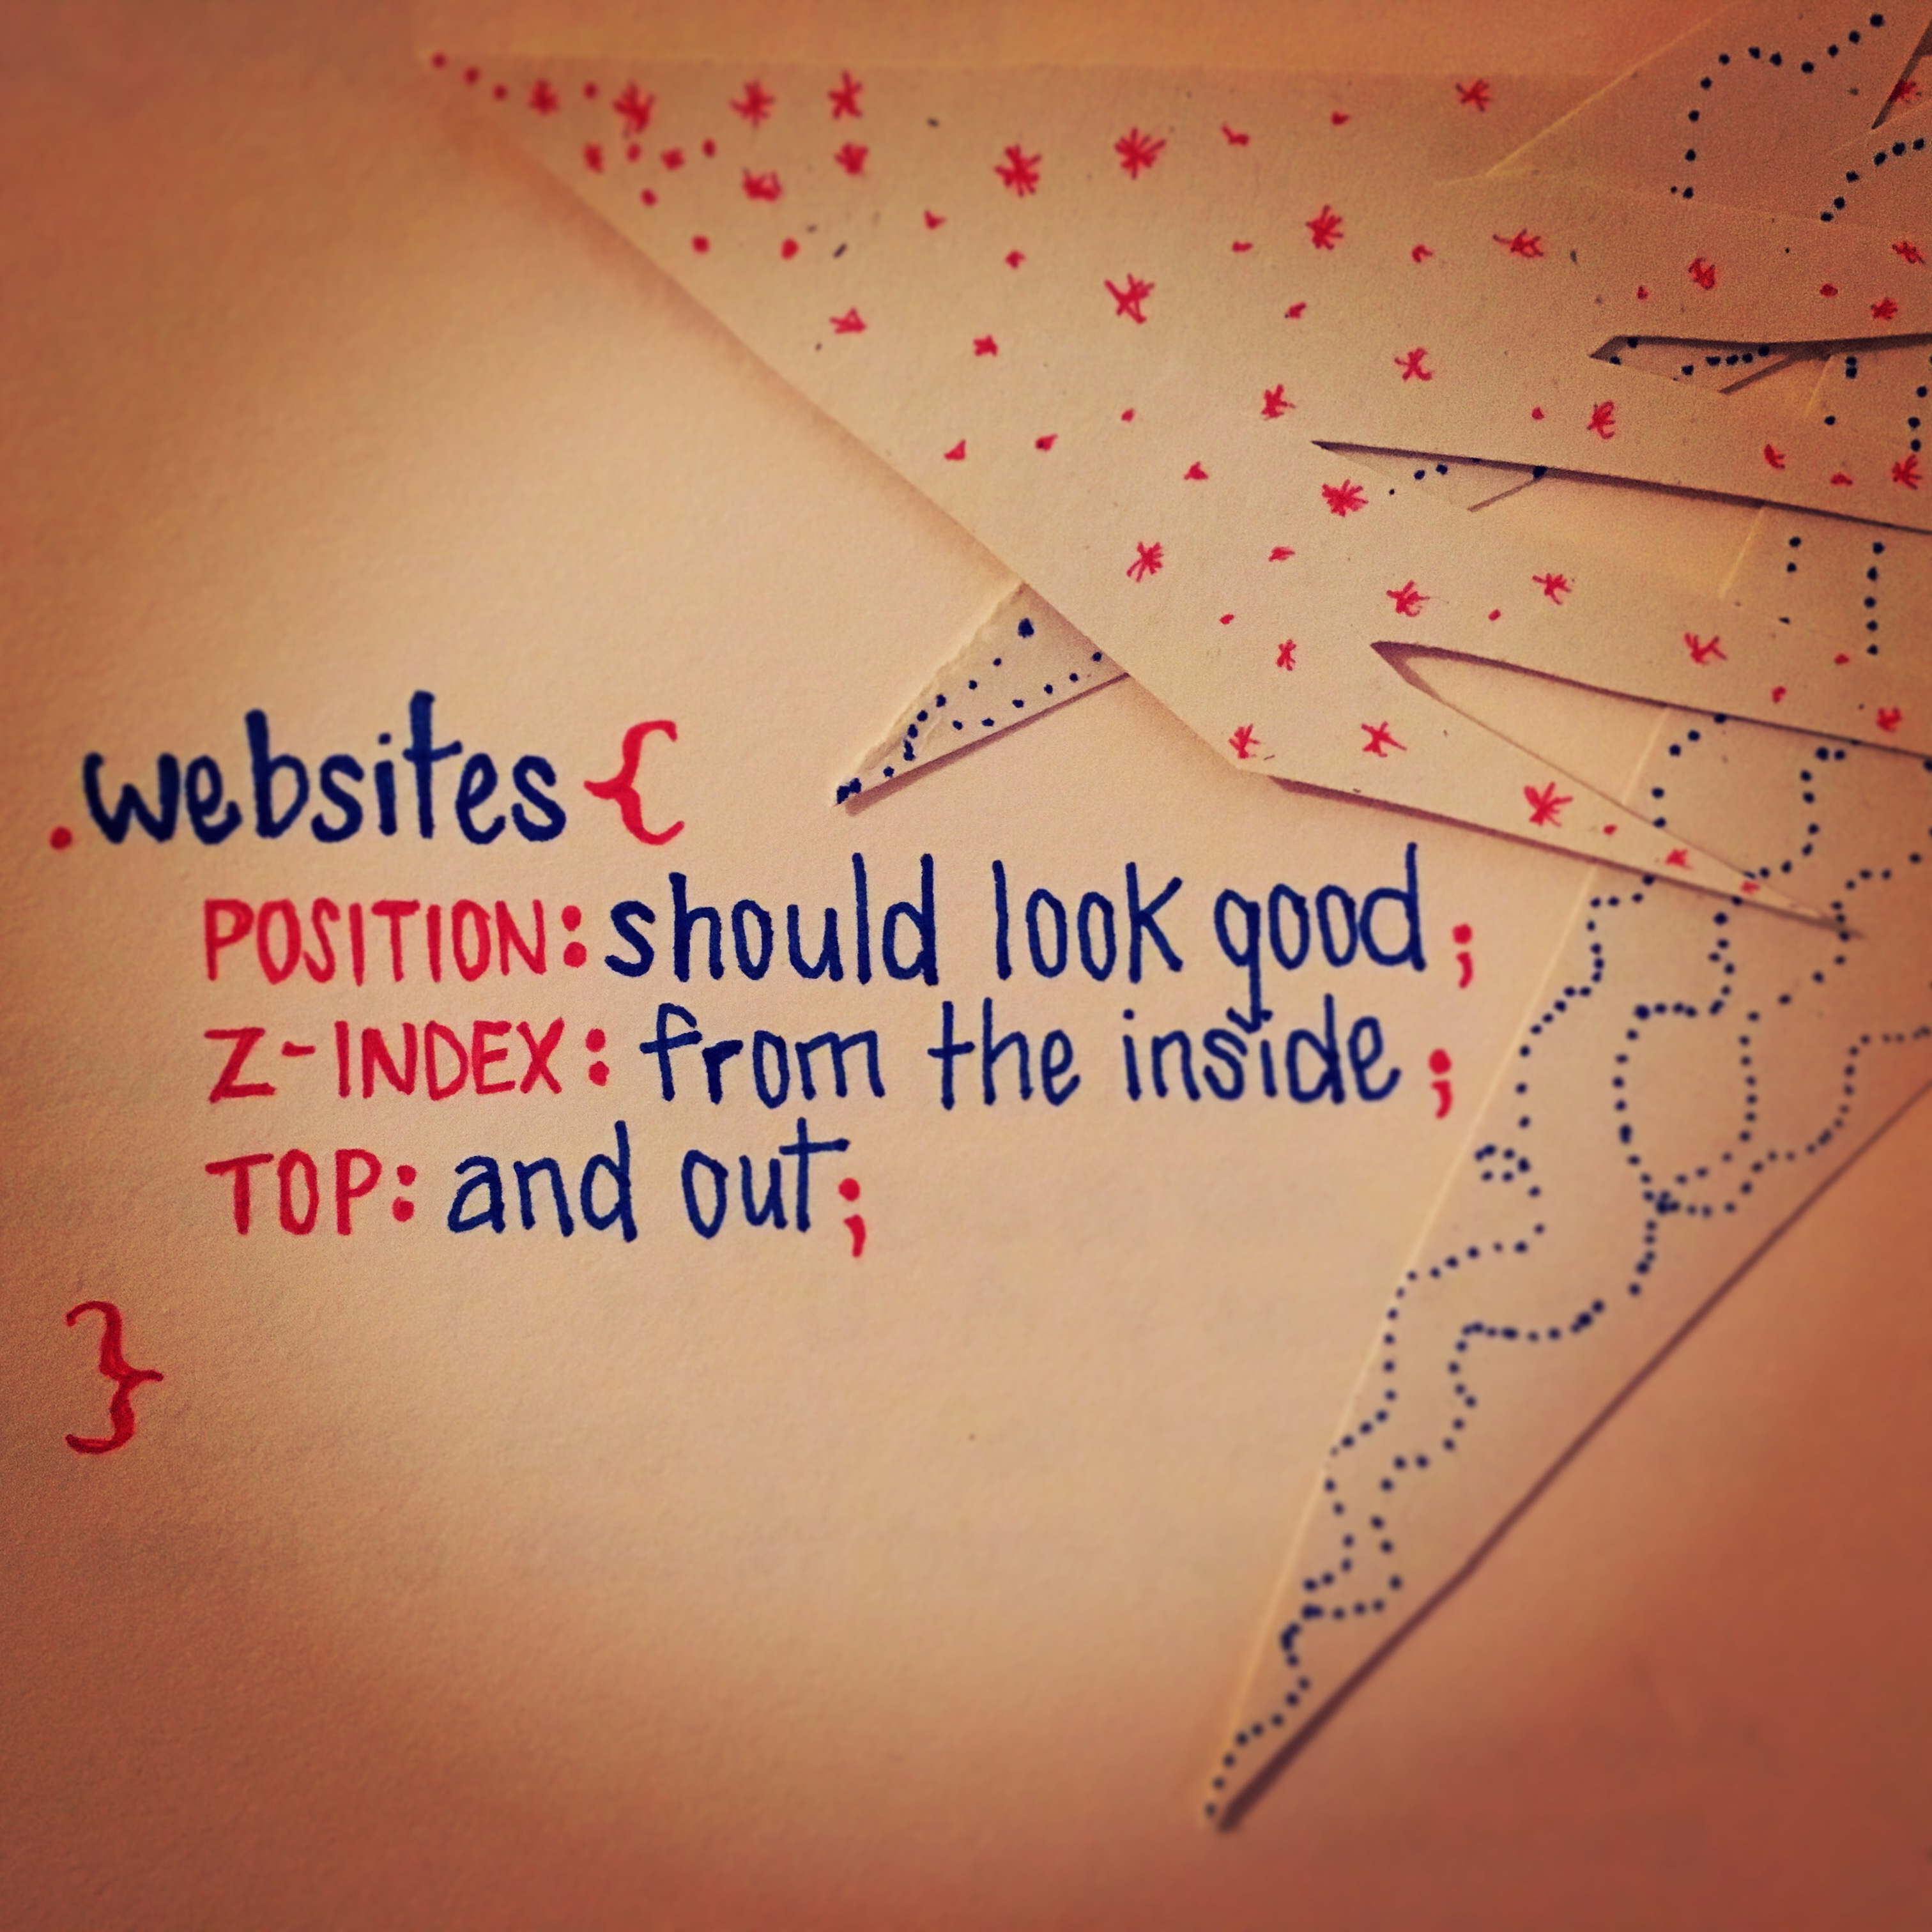 .websites {
POSITION: should look good;
Z-INDEX: from the inside;
TOP: and out;
}